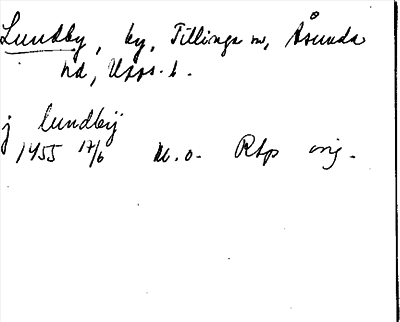 Lundby, by, Tillinge sn, Åsunda
hd, Upps. l.
j lundbij
1455 17/6 U. o. Rbp orig.